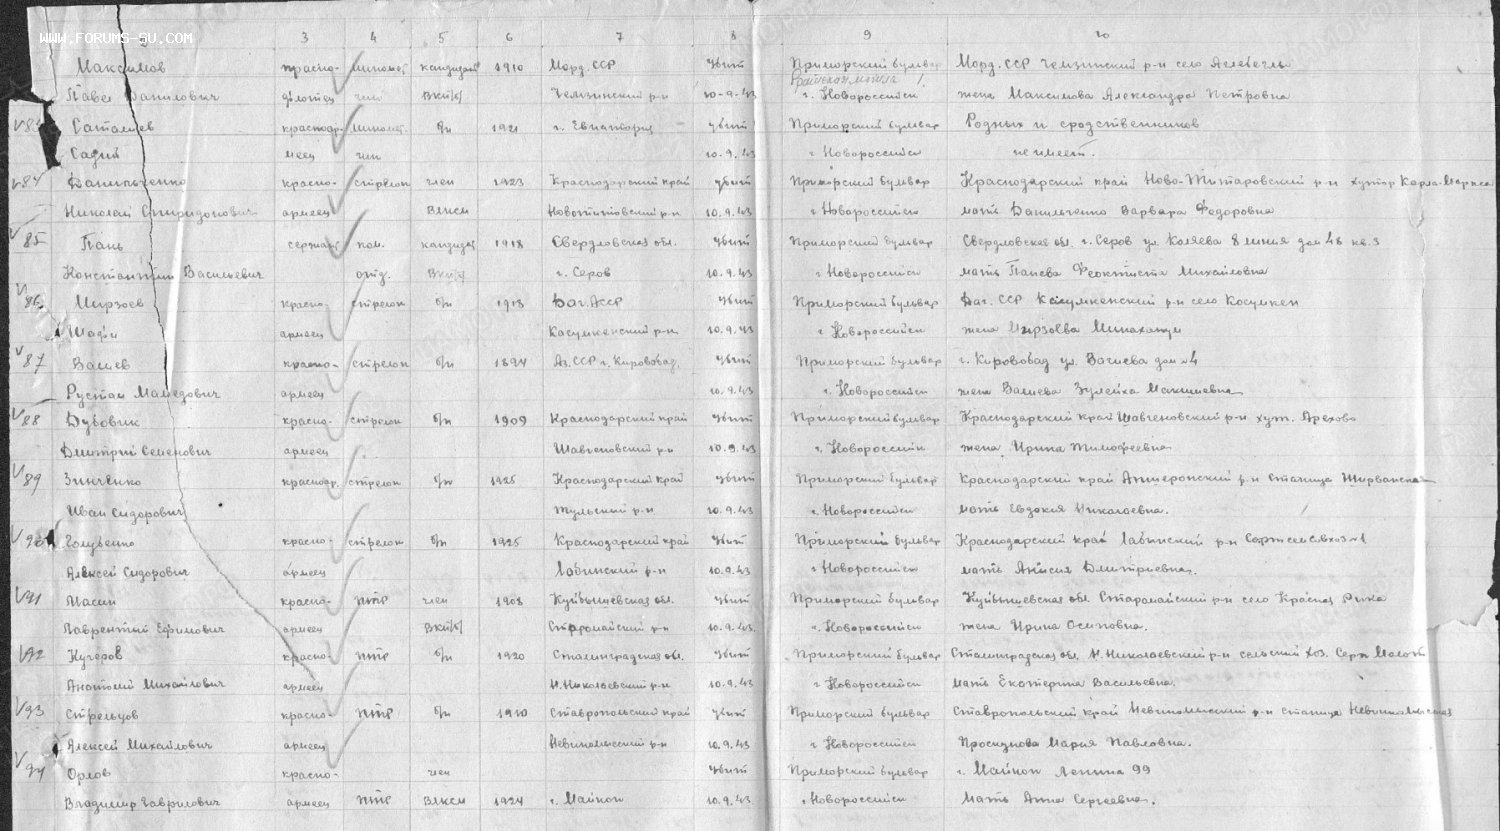 WWW.FORUMS-SU.COM
3 4 5 6 7 8 9 10
Максимов красно- миномет кандидат 1910 Морд. ССР убит Приморский бульвар Морд. ССР Чемзинский р-н село
Павел Данилович флотец чик ВКП/б/ Чемзинский р-н 10-9-43 г. Новороссийск жена Максимова Александра Петровна
красноар- миномет. б/п 1921 г. Евпатория убит Приморский бульвар Родных и сродственников
Садий меец чик 10.9.43 г Новороссийск не имеет.
84 Данильченко красно- стрелок член 1923 Краснодарский край убит Приморский бульвар Краснодарский край Ново-Титаровский р-н хутор Карла-Маркса
Николай Спиридонович армеец ВЛКСМ Новотитовский р-н 10.9.43 г Новороссийск мать Данильченко Варвара Федоровна
85 Пань сержант пом. кандидат 1918 Свердловская обл. убит Приморский бульвар Свердловская обл. г. Серов ул. Каляева 8 линия дом 48 кв. 3
Константин Васильевич отд. ВКП/б/ г. Серов 10.9.43 г Новороссийск мать Панева Феоктиста Михайловна
86 Мирзоев красно- стрелок б/п 1913 Даг. АССР убит Приморский бульвар Даг. ССР Касумкенский р-н село Косумкен
Шафи армеец Касумкенский р-н 10.9.43 г Новороссийск жена Мирзоева
87 Валиев красно- стрелок б/п 1894 Аз. ССР г. Кировобад. убит Приморский бульвар г. Кировобад ул. Вагиева дом №4
Рустам Мамедович армеец 10.9.43 г. Новороссийск жена Валиева Зулейха
88 Дубовик красно- стрелок б/п 1909 Краснодарский край убит Приморский бульвар Краснодарский край Шавгеновский р-н хут. Арехово
Дмитрий Семенович армеец Шавгеновский р-н 10.9.43 г. Новороссийск жена Ирина Тимофеевна
89 Зинченко красноар. стрелок б/п 1925 Краснодарский край убит Приморский бульвар Краснодарский край Апшеронский р-н Станица Ширванская
Иван Сидорович Тульский р-н 10.9.43 г. Новороссийск мать Евдокия Николаевна.
90 Голубенко красно- стрелок б/п 1925 Краснодарский край убит Приморский бульвар Краснодарский край Лабинский р-н Сортсемсовхоз №1
Алексей Сидорович армеец Лабинский р-н 10.9.43 г Новороссийск мать Анисия Дмитриевна.
91 Масин красно- ПТР член 1908 Куйбышевская обл. убит Приморский бульвар Куйбышевская обл. Старомайский р-н село Красная Река
Лаврентий Ефимович армеец ВКП/б/ Старомайский р-н 10.9.43. г. Новороссийск жена Ирина Осиповна.
92 Кучеров красно- ПТР б/п 1920 Сталинградская обл. убит Приморский бульвар Сталинградская обл. Н. Николаевский р-н сельский хоз. Серп Молот
Анатолий Михайлович армеец Н. Николаевский р-н 10.9.43 г Новороссийск мать Екатерина Васильевна.
93 Стрельцов красно- ПТР б/п 1910 Ставропольский край убит Приморский бульвар Ставропольский край Невиномысский р-н станица Невиномысская
Алексей Михайлович армеец Невиномысский р-н 10.9.43 г Новороссийск Проскунова Мария Павловна.
94 Орлов красно- член убит Приморский бульвар г. Майкоп Ленина 99
Владимир Гаврилович армеец ПТР ВЛКСМ 1924 г. Майкоп 10.9.43 г Новороссийск Мать Анна Сергеевна.